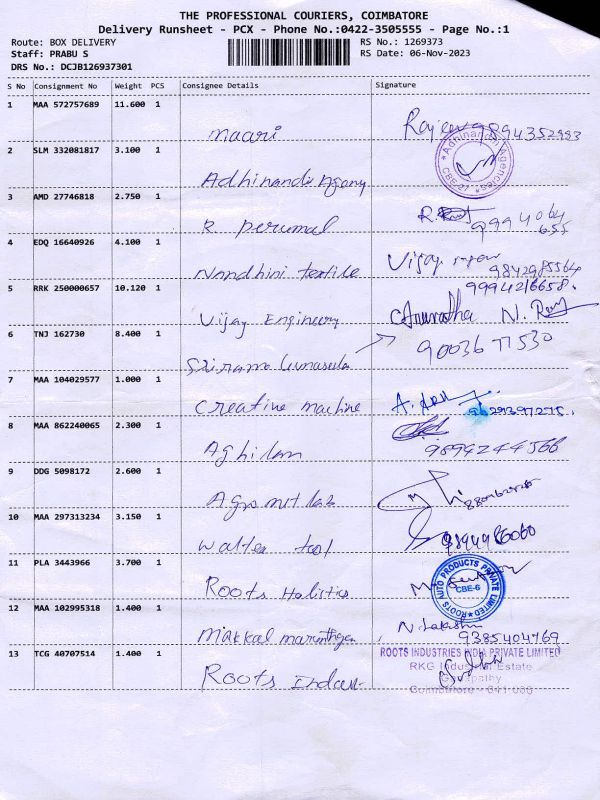 THE PROFESSIONAL COURIERS, COIMBATORE
Delivery Runsheet - PCX - Phone No.:0422-3505555 - Page No.:1
Route: BOX DELIVERY
Staff: PRABU S
DRS No.: DCJB126937301
RS No.: 1269373
RS Date: 06-Nov-2023
S No Consignment No Weight PCS Consignee Details Signature
1 MAA 572757689 11.600 1
maari Rajeev 9894352993
2 SLM 332081817 3.100 1
Adhinandi Agency
Adhinandhi Agencies
CBE-27
3 AMD 27746818 2.750 1
R. perumal R. 9994064
655
4 EDQ 16640926 4.100 1
Nandhini textile Vijay
9842985564
5 RRK 250000657 10.120 1
9994216658.
Vijay Engineery Anuratha N.
6 TNJ 162730 8.400 1
Sriram 9003677530
7 MAA 104029577 1.000 1
creative machine A. 9629397275.
8 MAA 862240065 2.300 1
Aghilan 9894244566
9 DDG 5098172 2.600 1
10 MAA 297313234 3.150 1
walter tool
11 PLA 3443966 3.700 1
Roots Holistics
ROOTS AUTO PRODUCTS PRIVATE LIMITED
CBE-6
12 MAA 102995318 1.400 1
makkal 9385404769
13 TCG 40707514 1.400 1
ROOTS INDUSTRIES INDIA PRIVATE LIMITED
RKG Industrial Estate
Ganapathy
Coimbatore - 641 006
Roots